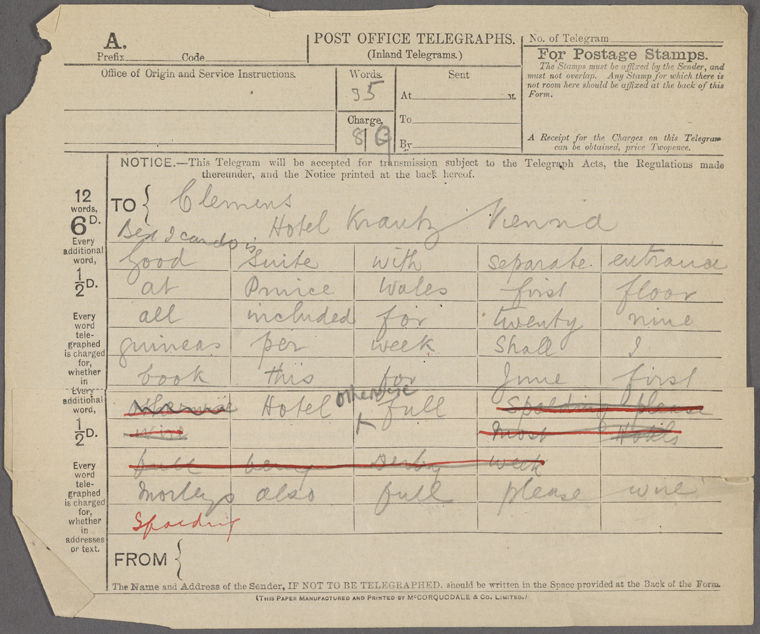 A.
Prefix Code
POST OFFICE TELEGRAPHS.
(Inland Telegrams.)
No. of Telegram
For Postage Stamps.
The Stamps must be affixed by the Sender, and
must not overlap. Any Stamp for which there is
not room here should be affixed at the back of this
Form.
A Receipt for the Charges on this Telegram
can be obtained, price Twopence.
Office of Origin and Service Instructions.
Words.
35
Charge.
8/
Sent
At M.
To
By
NOTICE.—This Telegram will be accepted for transmission subject to the Telegraph Acts, the Regulations made
thereunder, and the Notice printed at the back hereof.
12
words,
6D.
Every
additional
word,
½D.
Every
word
tele-
graphed
is charged
for,
whether
in
TO { Clemens
Hotel Krantz Vienna
Best I can do is
Good Suite with separate entrance
at Prince Wales first floor
all included for twenty nine
guineas per week Shall I
book this for June first
Every
additional
word,
½D.
Every
word
tele-
graphed
is charged
for,
whether
in
addresses
or text.
otherwise Hotel otherwise full Spalding please
wire Most Hotels
full being Derby week
Morleys also full please wire
Spalding
FROM {
The Name and Address of the Sender, IF NOT TO BE TELEGRAPHED, should be written in the Space provided at the Back of the Form.
(THIS PAPER MANUFACTURED AND PRINTED BY MCCORQUODALE & CO. LIMITED.)